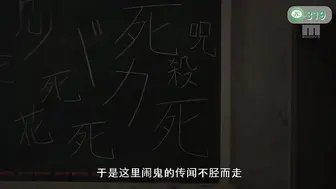 319
死
呪
バカ
殺
死
死
死
花
于是这里闹鬼的传闻不胫而走